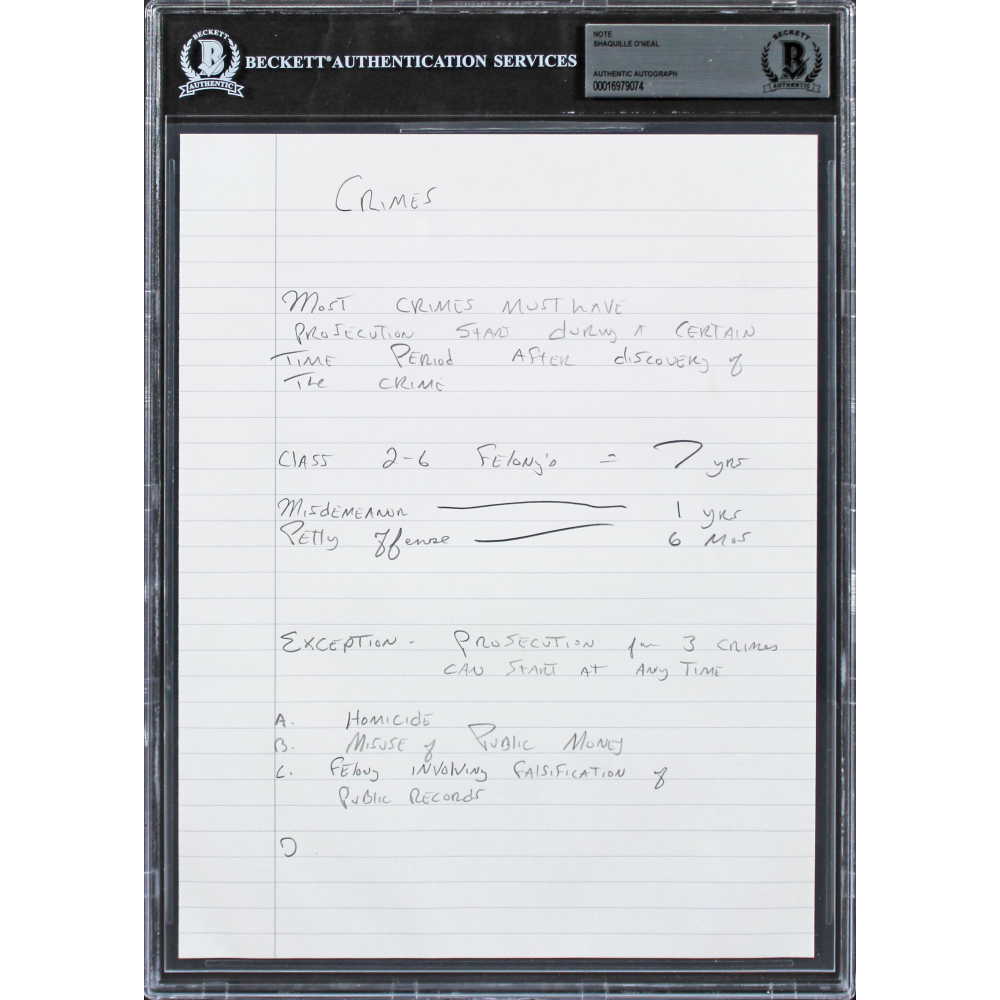 BECKETT
B
AUTHENTIC
BECKETT® AUTHENTICATION SERVICES
NOTE
SHAQUILLE O'NEAL
AUTHENTIC AUTOGRAPH
00016979074
BECKETT
B
AUTHENTIC
CRIMES
MOST CRIMES MUST HAVE
PROSECUTION START during A CERTAIN
TIME PERiod AFTER discovery of
The CRIME
ClASS 2-6 FElony's = 7 yrs
MisdEMEANOR 1 yrs
PETTy Offense 6 Mos
EXCEPTION - PROSECUTION for 3 CRIMES
CAN START AT ANy TIME
A. HOMICIDE
B. MISUSE of PUBLIC MONEY
C. FElony INVOlViNg FAlSIFICATION of
PUBlic RECORdS
D